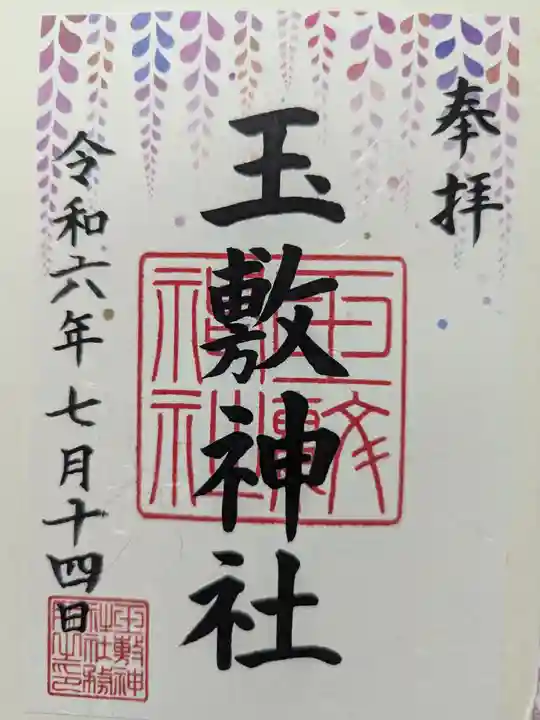 奉拝
玉敷神社
令和六年七月十四日
玉敷神社
玉敷神社社務所之印